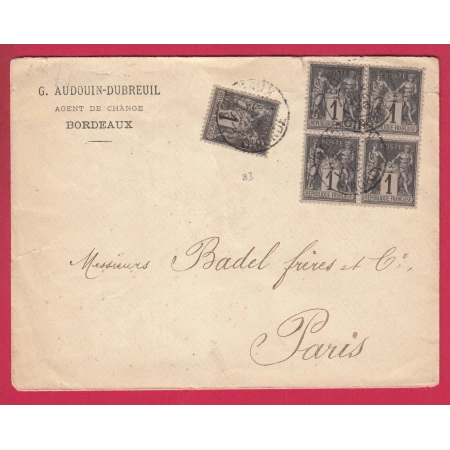 G. AUDOUIN-DUBREUIL
AGENT DE CHANGE
BORDEAUX
POSTE POSTE
1 1
REPUBLIQUE FRANÇAISE REPUBLIQUE FRANÇAISE
POSTE POSTE
1 1
REPUBLIQUE FRANÇAISE REPUBLIQUE FRANÇAISE
1
83
Messieurs Badel frères et Cie,
Paris